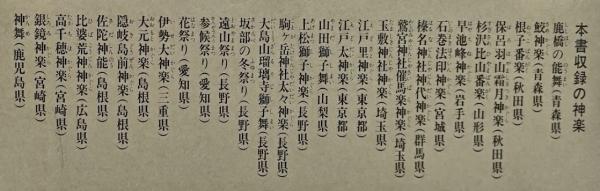 本書収録の神楽
鹿橋の能舞(青森県)
鮫神楽(青森県)
根子番楽(秋田県)
保呂羽山霜月神楽(秋田県)
杉沢比山番楽(山形県)
早池峰神楽(岩手県)
石巻法印神楽(宮城県)
榛名神社神代神楽(群馬県)
鷲宮神社催馬楽神楽(埼玉県)
玉敷神社神楽(埼玉県)
江戸里神楽(東京都)
江戸太神楽(東京都)
山田獅子舞(山梨県)
上松獅子神楽(長野県)
駒ヶ岳神社太々神楽(長野県)
大島山瑠璃寺獅子舞(長野県)
坂部の冬祭り(長野県)
遠山祭り(長野県)
参候祭り(愛知県)
花祭り(愛知県)
伊勢大神楽(三重県)
大元神楽(島根県)
隠岐島前神楽(島根県)
佐陀神能(島根県)
比婆荒神神楽(広島県)
高千穂神楽(宮崎県)
銀鏡神楽(宮崎県)
神舞(鹿児島県)